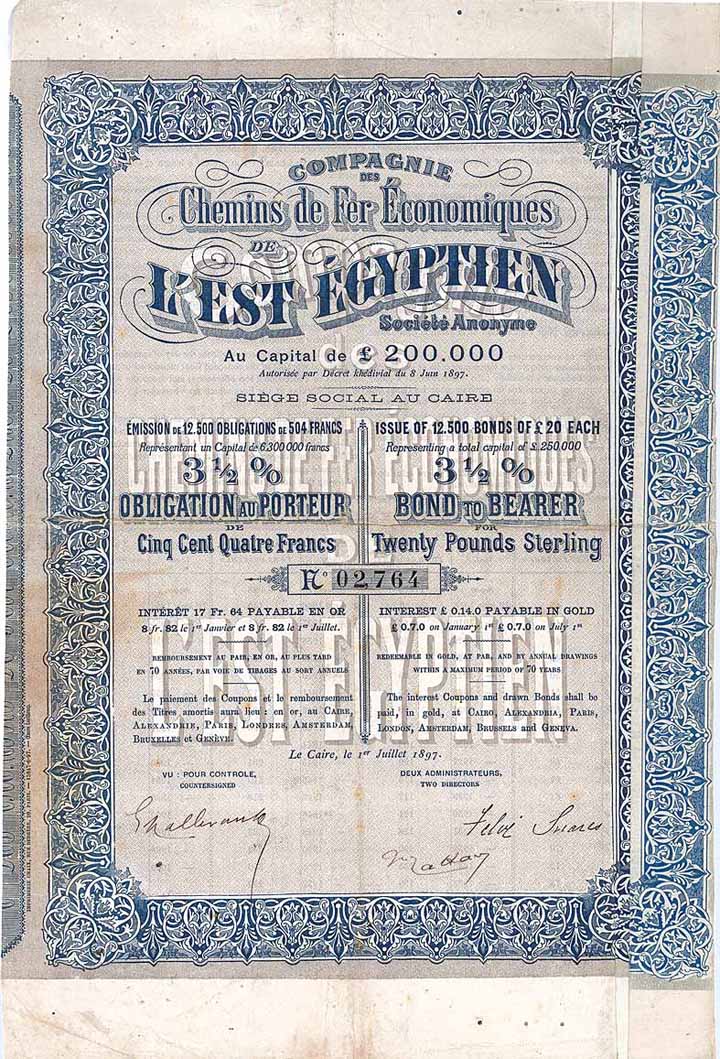 COMPAGNIE
DES
Chemins de Fer Économiques
DE
L'EST ÉGYPTIEN
Société Anonyme
Au Capital de £ 200.000
Autorisée par Décret khédivial du 8 Juin 1897.
SIÈGE SOCIAL AU CAIRE
ÉMISSION DE 12.500 OBLIGATIONS DE 504 FRANCS
Représentant un Capital de 6.300.000 francs
3 ½ %
OBLIGATION AU PORTEUR
DE
Cinq Cent Quatre Francs
ISSUE OF 12.500 BONDS OF £ 20 EACH
Representing a total capital of £ 250.000
3 ½ %
BOND TO BEARER
FOR
Twenty Pounds Sterling
No 02,764
INTÉRÊT 17 Fr. 64 PAYABLE EN OR
8 fr. 82 le 1er Janvier et 8 fr. 82 le 1er Juillet.
REMBOURSEMENT AU PAIR, EN OR, AU PLUS TARD
EN 70 ANNÉES, PAR VOIE DE TIRAGES AU SORT ANNUELS
Le paiement des Coupons et le remboursement
des Titres amortis aura lieu : en or, au CAIRE,
ALEXANDRIE, PARIS, LONDRES, AMSTERDAM,
BRUXELLES et GENÈVE.
INTEREST £ 0.14.0 PAYABLE IN GOLD
£ 0.7.0 on January 1st £ 0.7.0 on July 1st
REDEEMABLE IN GOLD, AT PAR, AND BY ANNUAL DRAWINGS
WITHIN A MAXIMUM PERIOD OF 70 YEARS
The interest Coupons and drawn Bonds shall be
paid, in gold, at CAIRO, ALEXANDRIA, PARIS,
LONDON, AMSTERDAM, BRUSSELS and GENEVA.
Le Caire, le 1er Juillet 1897.
VU : POUR CONTROLE,
COUNTERSIGNED
DEUX ADMINISTRATEURS,
TWO DIRECTORS
Felix Suares
CHEMINS DE FER ÉCONOMIQUES
DE
L'EST ÉGYPTIEN